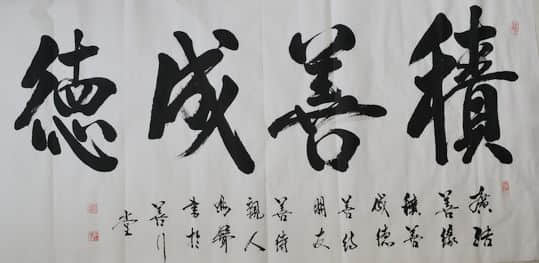 積善成德
廣结
善緣
積善
成德
善
朋友
善待
親人
書於
善行
堂